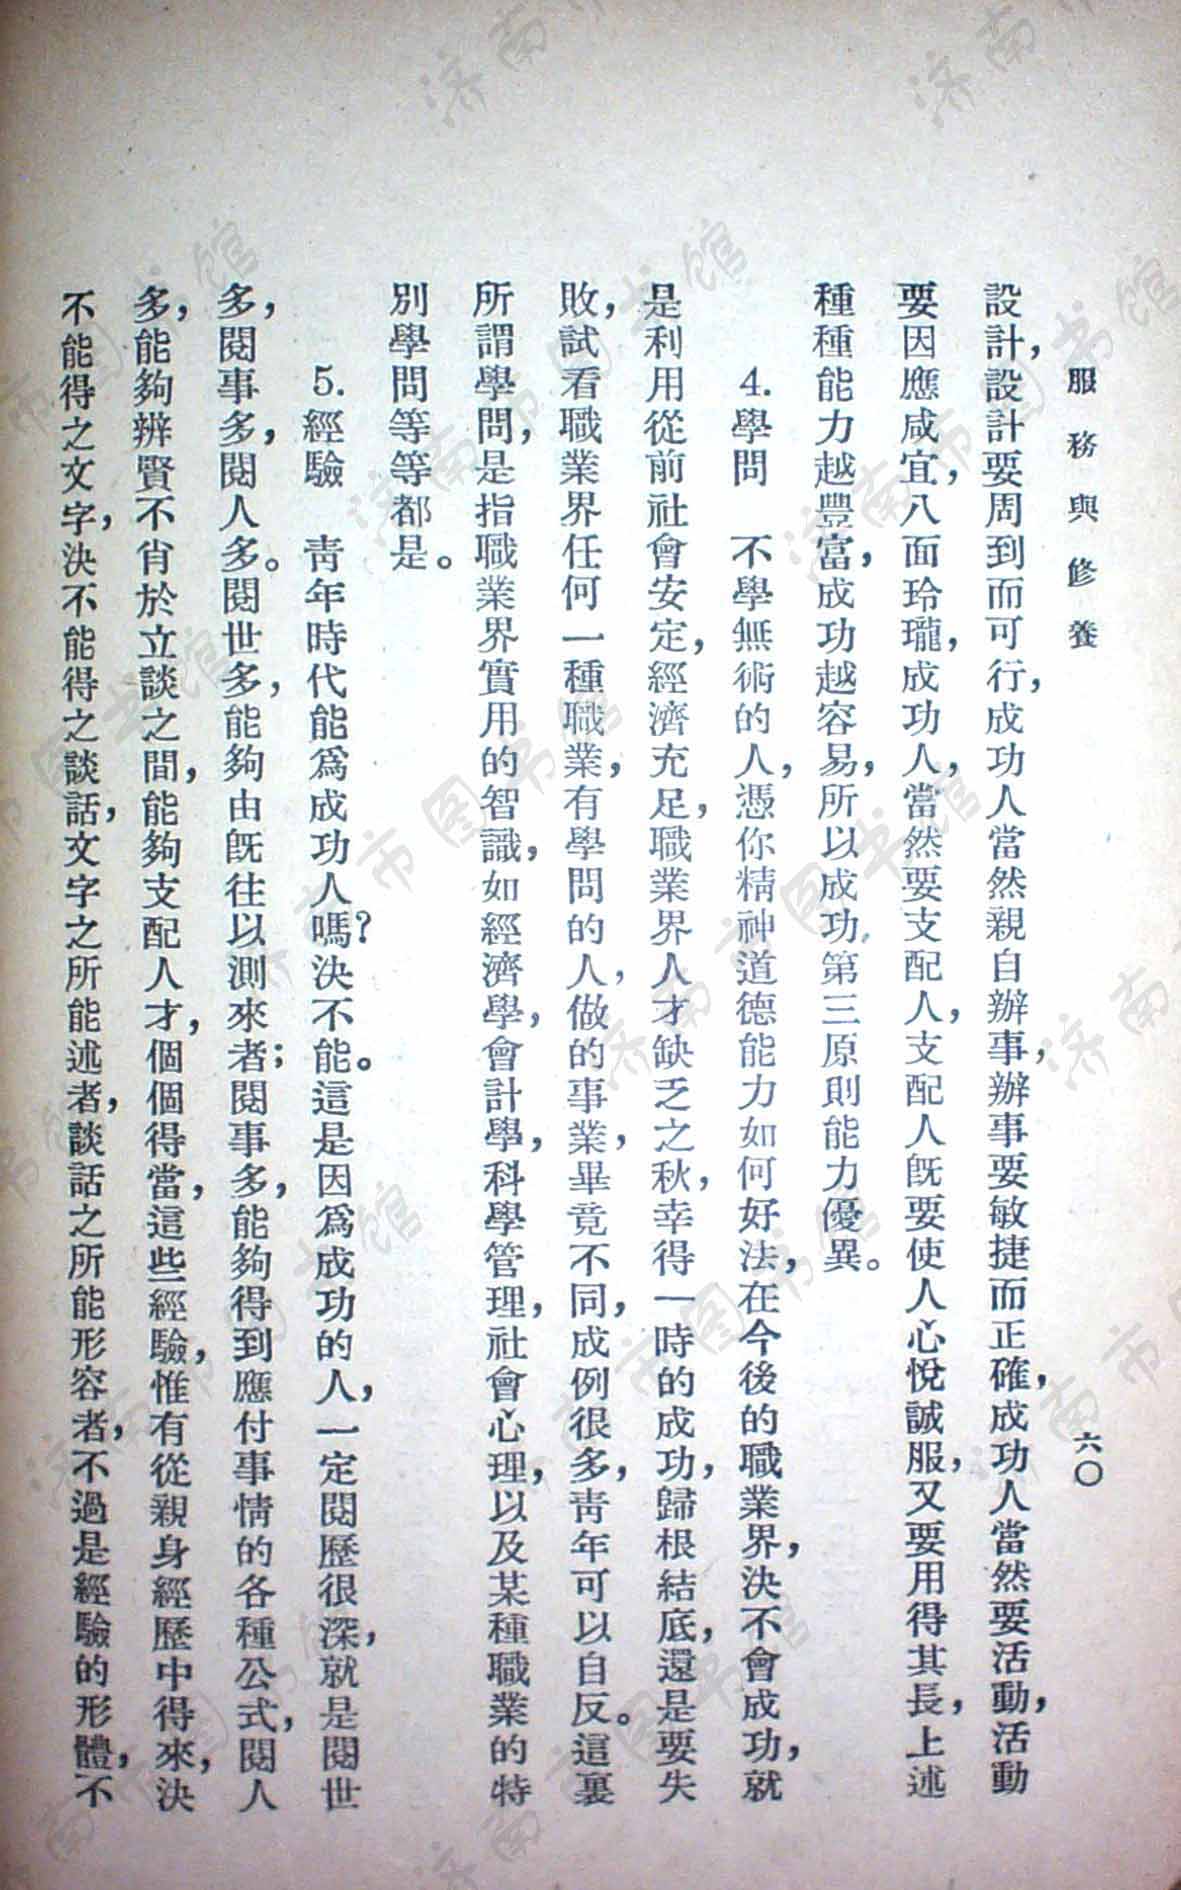 服務與修養
六〇
設計，設計要周到而可行，成功人當然親自辦事，辦事要敏捷而正確，成功人當然要活動，活動
要因應咸宜，八面玲瓏，成功人，當然要支配人，支配人旣要使人心悅誠服，又要用得其長，上述
種種能力越豐富，成功越容易，所以成功，第三原則能力優異。
4. 學問　不學無術的人，憑你精神道德能力如何好法，在今後的職業界，決不會成功，就
是利用從前社會安定，經濟充足，職業界人才缺乏之秋，幸得一時的成功，歸根結底，還是要失
敗，試看職業界任何一種職業，有學問的人，做的事業，畢竟不同，成例很多，靑年可以自反。這裏
所謂學問，是指職業界實用的智識，如經濟學，會計學，科學管理，社會心理，以及某種職業的特
別學問等等都是。
5. 經驗　靑年時代能爲成功人嗎？決不能。這是因爲成功的人，一定閱歷很深，就是閱世
多，閱事多，閱人多。閱世多，能夠由旣往以測來者；閱事多，能夠得到應付事情的各種公式，閱人
多，能夠辨賢不肖於立談之間，能夠支配人才，個個得當，這些經驗，惟有從親身經歷中得來，決
不能得之文字，決不能得之談話，文字之所能述者，談話之所能形容者，不過是經驗的形體，不
济南市图书馆